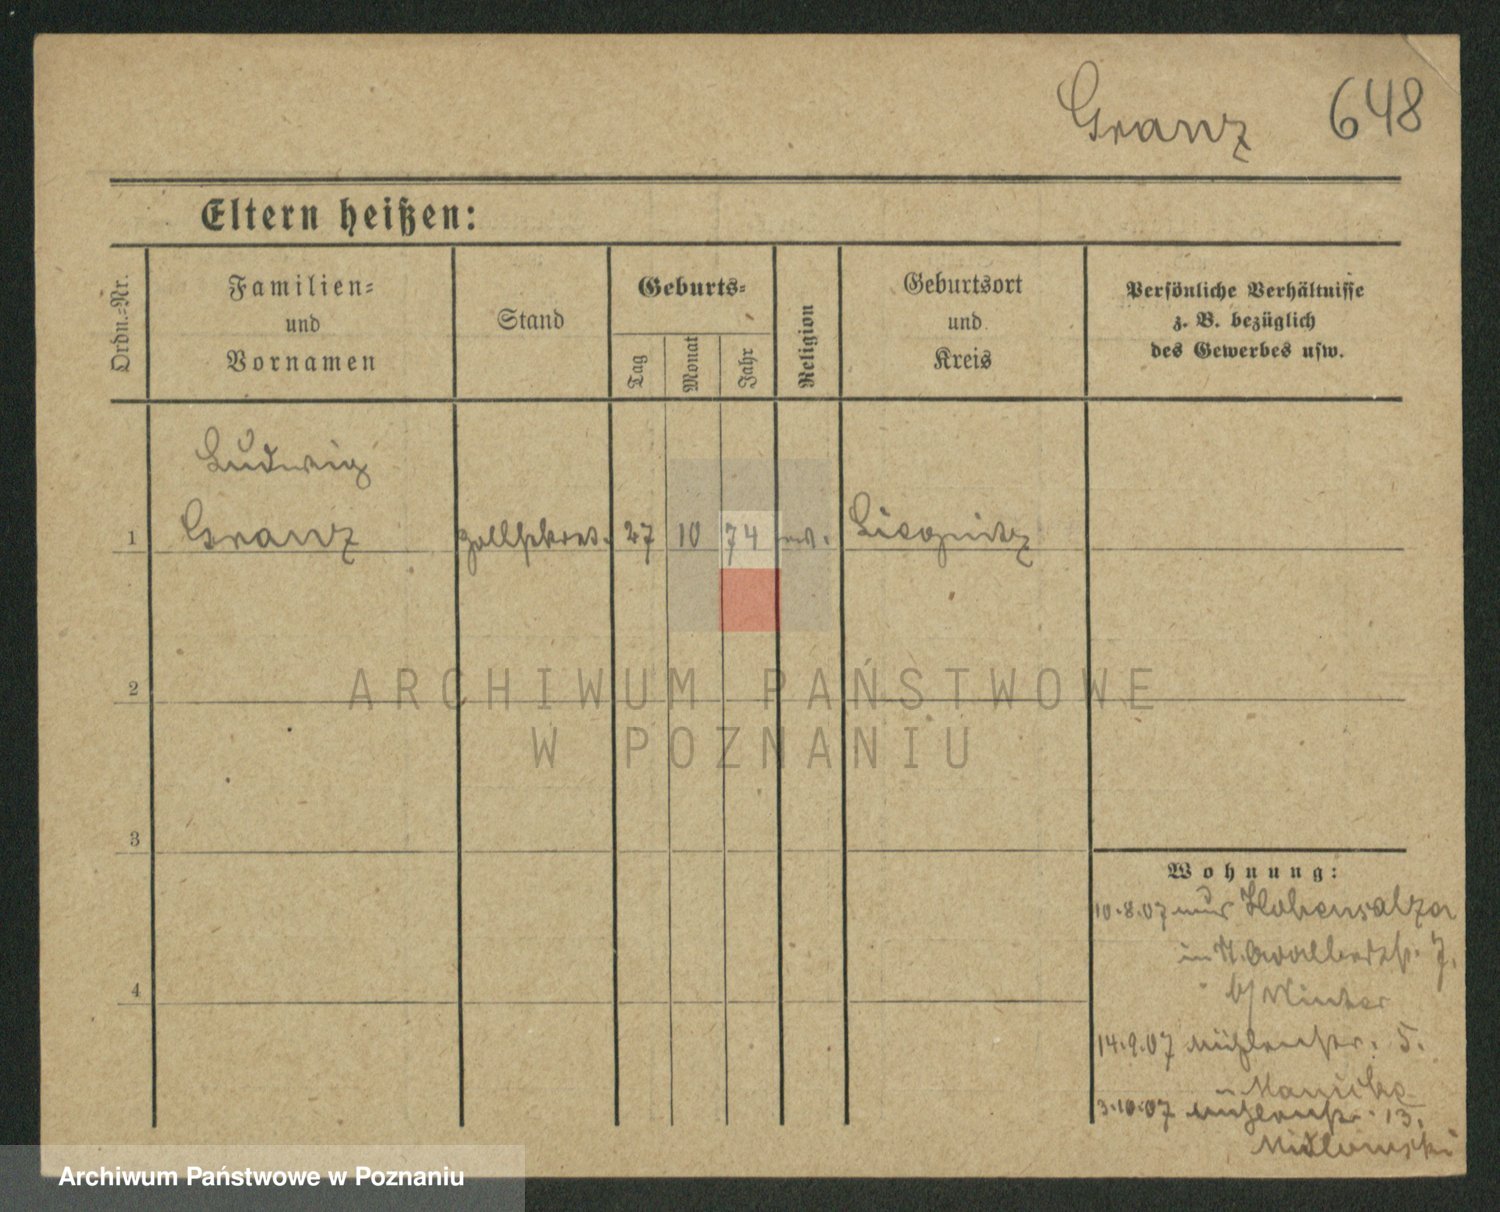 Granz 648
Eltern heißen:
Ordn.-Nr.
Familien-
und
Vornamen
Stand
Geburts-
Tag
Monat
Jahr
Religion
Geburtsort
und
Kreis
Persönliche Verhältnisse
z. B. bezüglich
des Gewerbes usw.
Ludwig
1 Granz Zollsekret. 27 10 74 Liegnitz
2
3
4
Wohnung:
10.8.07 aus Hohensalza
in 7.
b/ Winter
14.9.07 Mühlenstr. 5.
3.10.07 Mühlenstr. 13.
ARCHIWUM PAŃSTWOWE
W POZNANIU
Archiwum Państwowe w Poznaniu